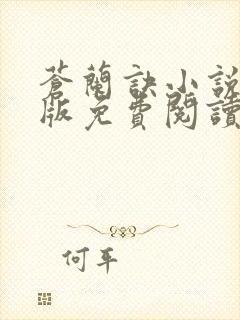 蒼蘭訣小説
版免費閱讀
何平